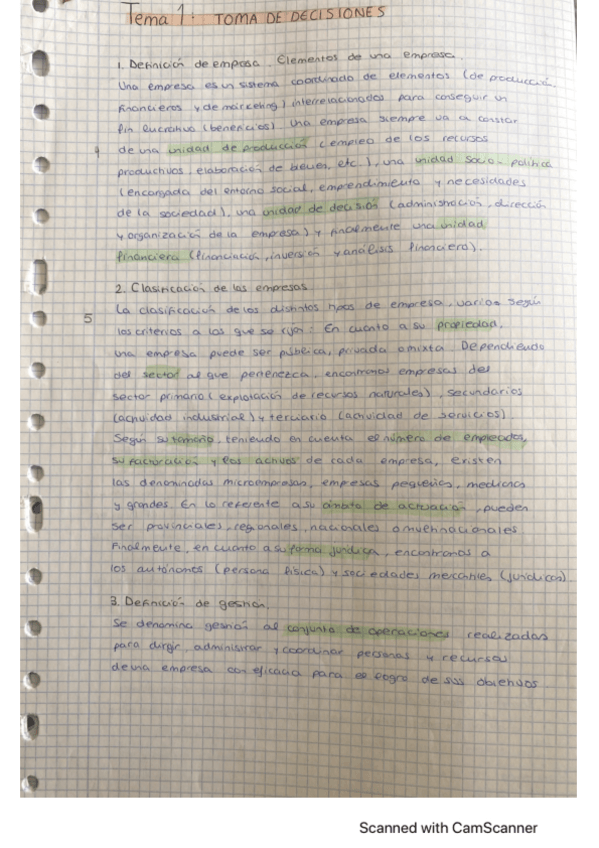 Tema 1: TOMA DE DECISIONES
1. Definición de empresa. Elementos de una empresa.
Una empresa es un sistema coordinado de elementos (de producción,
financieros y de marketing) interrelacionados para conseguir un
fin lucrativo (beneficios). Una empresa siempre va a constar
4 de una unidad de producción (empleo de los recursos
productivos, elaboración de bienes, etc.), una unidad socio-política
(encargada del entorno social, emprendimiento y necesidades
de la sociedad), una unidad de decisión (administración, dirección
y organización de la empresa) y finalmente una unidad
financiera (financiación, inversión y análisis financiera).
2. Clasificación de las empresas
5 La clasificación de los distintos tipos de empresa, varias según
los criterios a los que se rija: En cuanto a su propiedad,
una empresa puede ser pública, privada o mixta. Dependiendo
del sector al que pertenezca, encontramos empresas del
sector primario (explotación de recursos naturales), secundarios
(actividad industrial) y terciario (actividad de servicios).
Según su tamaño, teniendo en cuenta el número de empleados,
su facturación y los activos de cada empresa, existen
las denominadas microempresas, empresas pequeñas, medianas
y grandes. En lo referente a su ámbito de actuación, pueden
ser provinciales, regionales, nacionales o multinacionales
Finalmente, en cuanto a su forma jurídica, encontramos a
los autónomos (persona física) y sociedades mercantiles (jurídicas).
3. Definición de gestión.
Se denomina gestión al conjunto de operaciones realizadas
para dirigir, administrar y coordinar personas y recursos
de una empresa con eficacia para el logro de sus objetivos.
Scanned with CamScanner